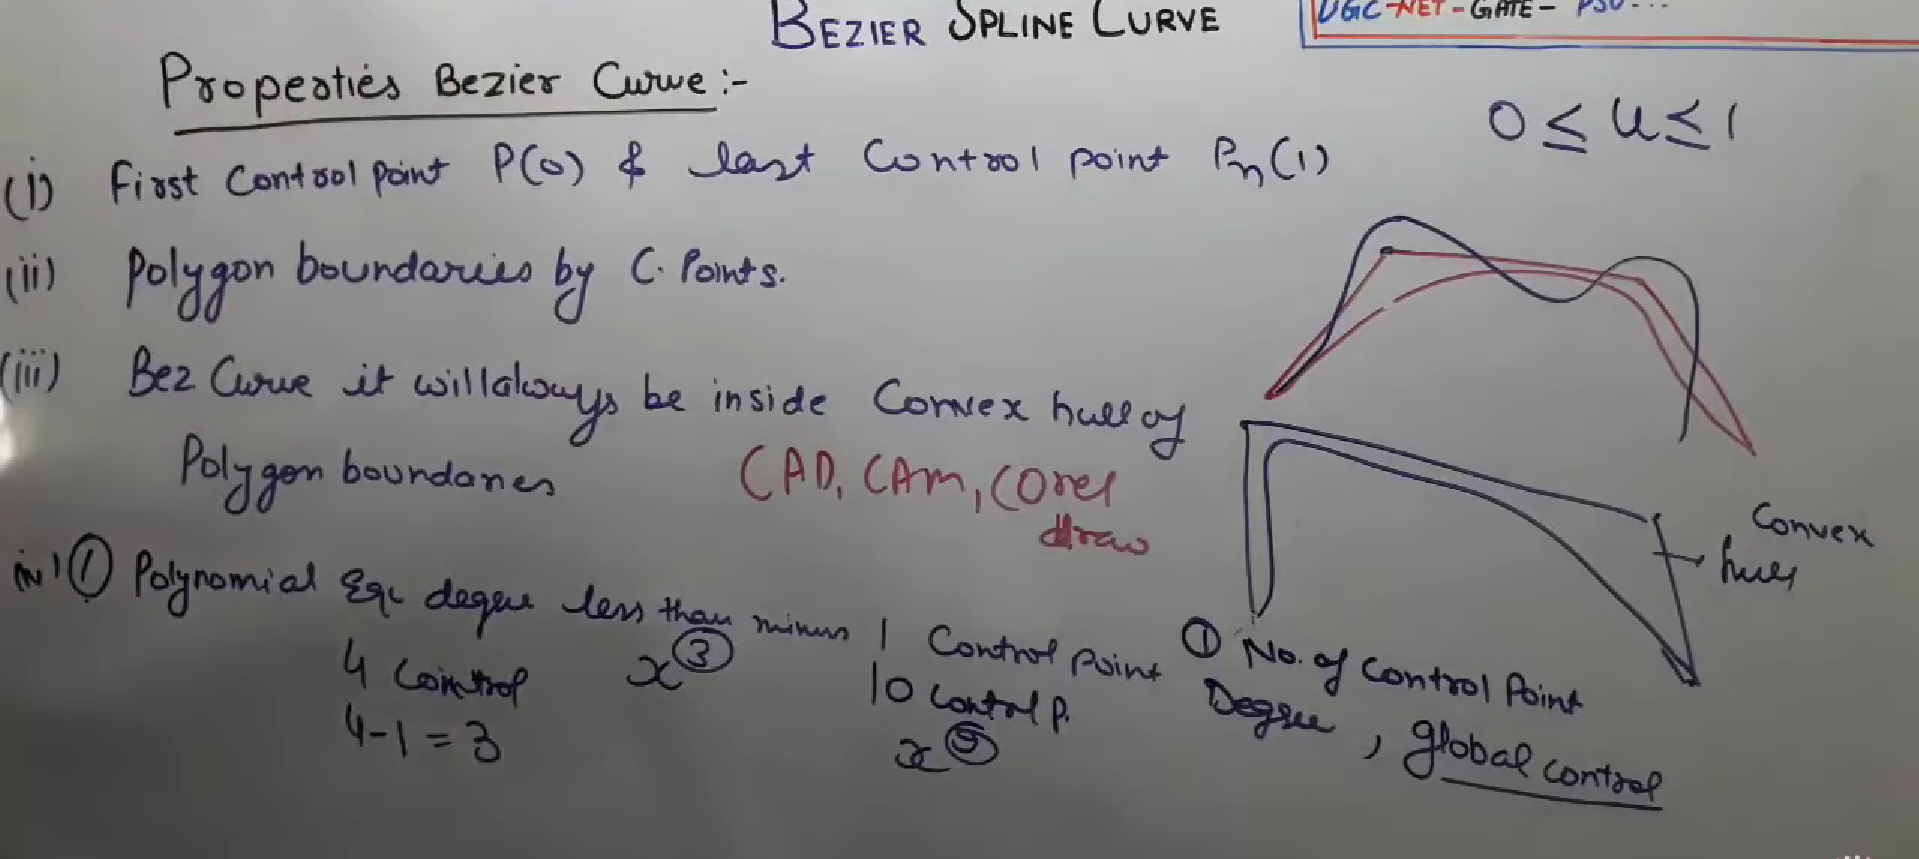 BEZIER SPLINE CURVE
UGC-NET-GATE- PSU...
Properties Bezier Curve :-
0 ≤ u ≤ 1
(i) First Control point P(0) & last Control point Pn(1)
(ii) Polygon boundaries by C. Points.
(iii) Bez Curve it will always be inside Convex hull of
Polygon boundaries
CAD, CAM, Corel
draw
Convex
hull
iv) ① Polynomial Eqn degree less than minus 1 Control point
4 Control x③
4-1=3
10 Control P.
x⑨
① No. of Control Point
Degree, global control